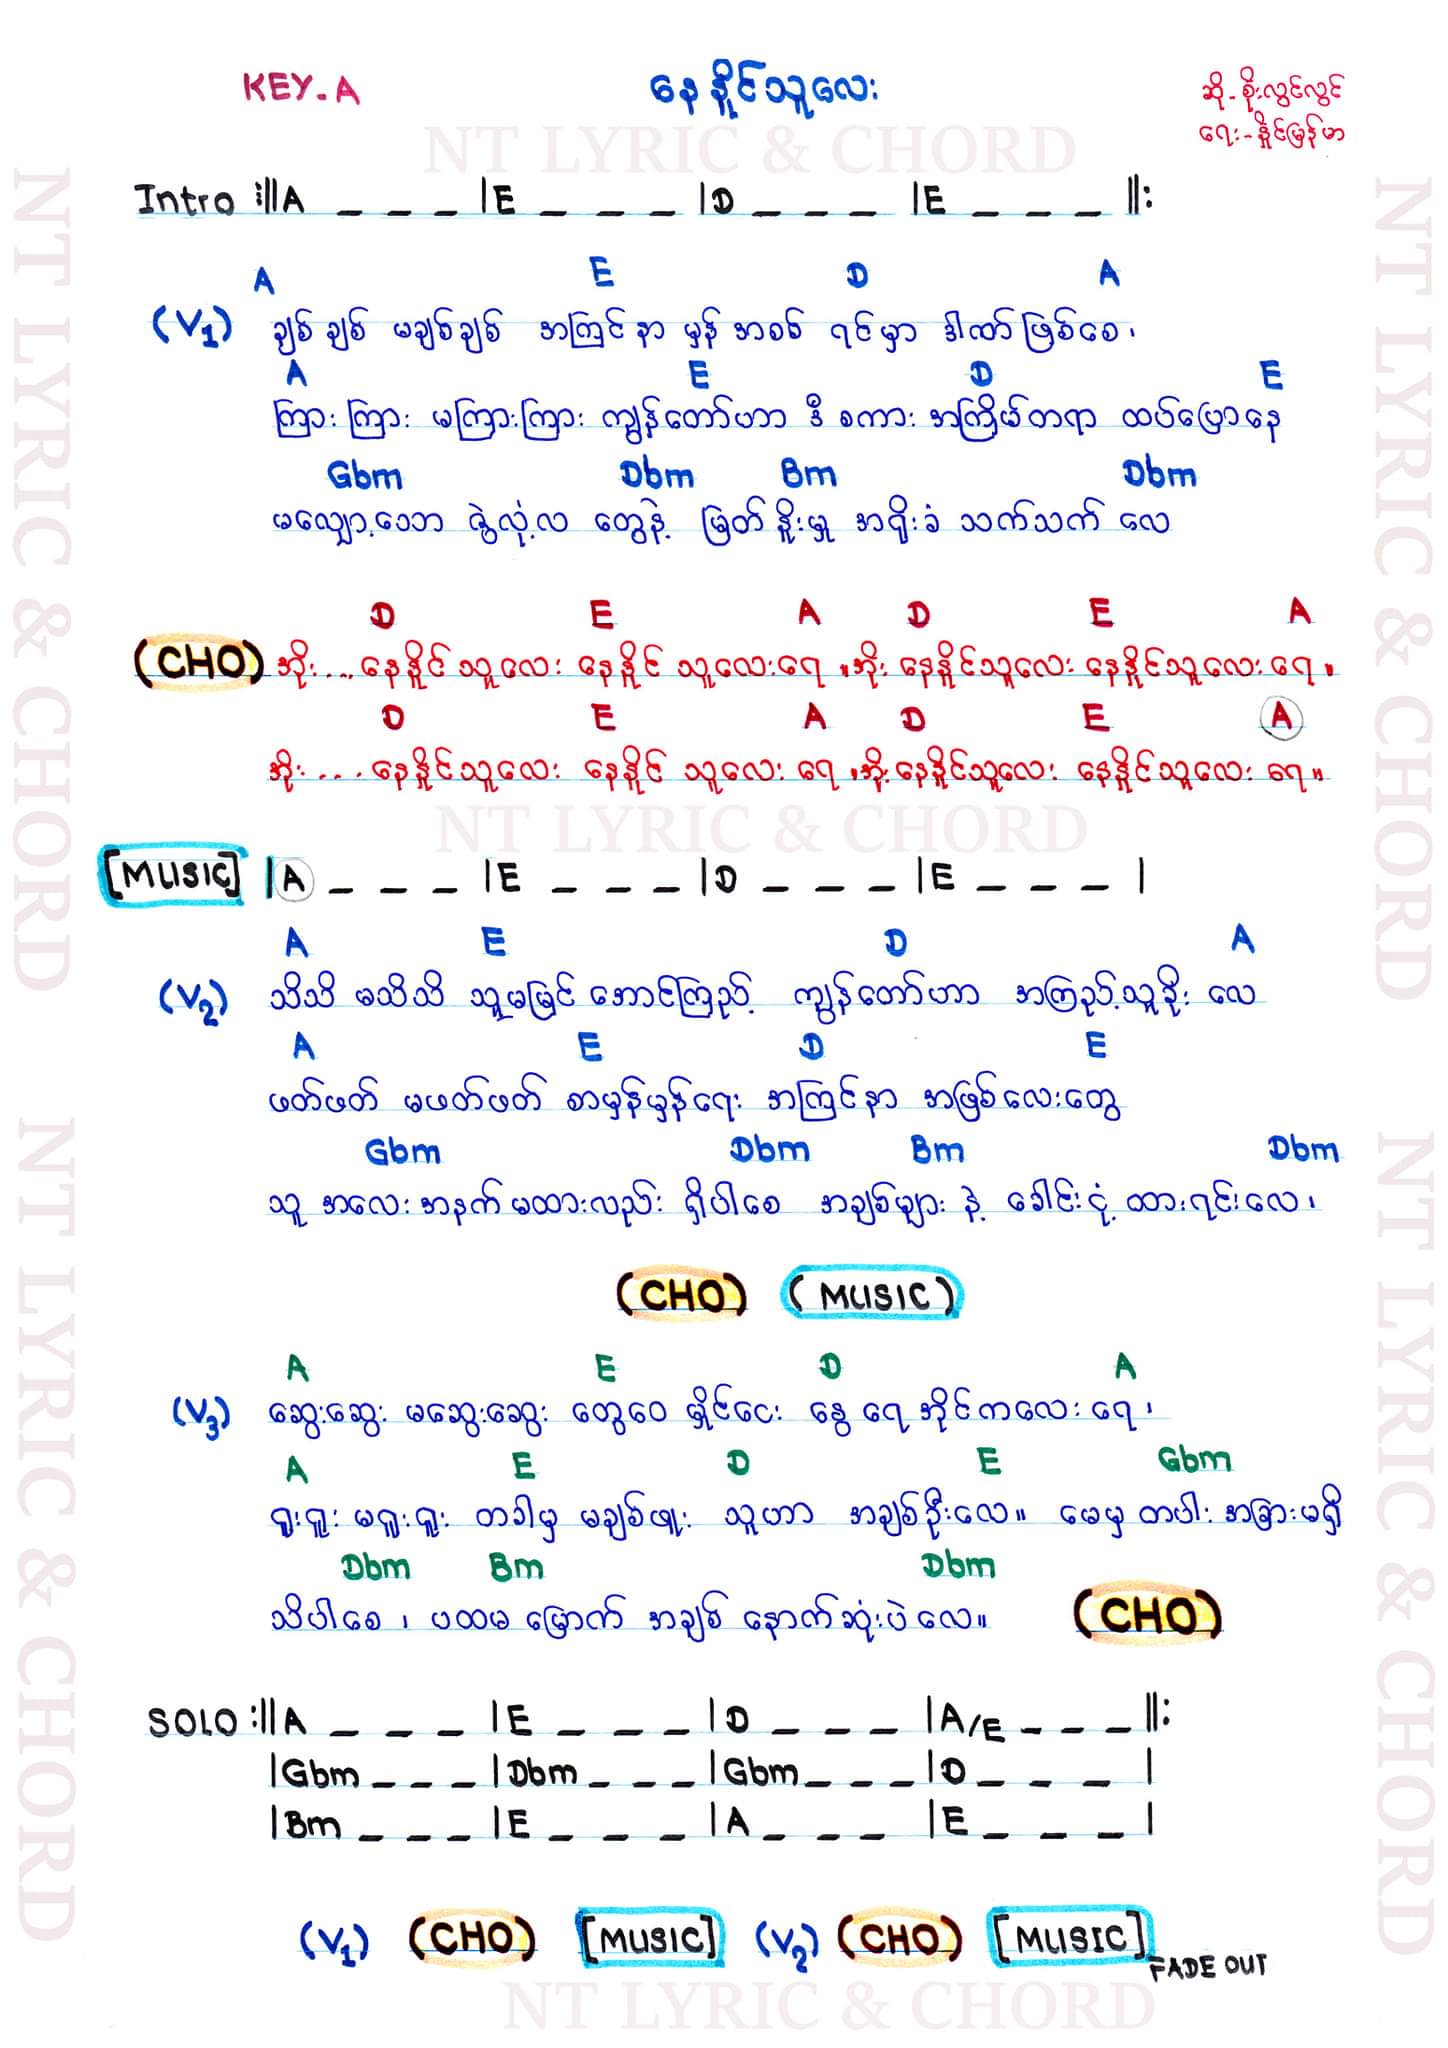 KEY-A
နေနိူင်သူလေး
ဆို-စိုးလွင်လွင်
ရေး-နှိုင်းမြန်မာ
NT LYRIC & CHORD
Intro :||A _ _ _ |E _ _ _ |D _ _ _ |E _ _ _ ||:
A E D A
(V1) ချစ်ချစ် မချစ်ချစ် အကြင်နာ မှန် အစစ် ရင်မှာ ဒါဏ်ဖြစ်စေ၊
A E D E
ကြားကြား မကြားကြား ကျွန်တော်ဟာ ဒီ စကား အကြိမ်တရာ ထပ်ပြောနေ
Gbm Dbm Bm Dbm
မလျှော့သောဘ ဇွဲလုံ့လ တွေနဲ့ မြတ်နိူးမှု အရိုးခံ သက်သက် လေ
(CHO) D E A D E A
အိုး.... နေနိူင်သူလေး နေနိူင် သူလေးရေ ။အိုး နေနိူင်သူလေး နေနိူင်သူလေး ရေ။
D E A D E A
အိုး.... နေနိူင်သူလေး နေနိူင် သူလေး ရေ ။အိုး နေနိူင်သူလေး နေနိူင်သူလေး ရေ။
NT LYRIC & CHORD
[MUSIC] |A _ _ _ |E _ _ _ |D _ _ _ |E _ _ _ |
A E D A
(V2) သိသိ မသိသိ သူမမြင် အောင်ကြည့် ကျွန်တော်ဟာ အကြည့်သူခိုး လေ
A E D E
ဖတ်ဖတ် မဖတ်ဖတ် စာမှန်မှန်ရေး အကြင်နာ အဖြစ်လေးတွေ
Gbm Dbm Bm Dbm
သူ အလေးအနက် မထားလည်း ရှိပါစေ အချစ်များ နဲ့ ခေါင်းငုံ့ ထားရင်းလေ၊
(CHO) (MUSIC)
A E D A
(V3) ဆွေးဆွေး မဆွေးဆွေး တွေဝေ မှိုင်ငေး နွေ ရေအိုင်ကလေး ရေ၊
A E D E Gbm
ရူးရူး မရူးရူး တခါမှ မချစ်ဖူး သူဟာ အချစ်ဦးလေ။ မေမှ တပါး အခြားမရှိ
Dbm Bm Dbm
သိပါစေ ၊ ပထမ မြောက် အချစ် နောက်ဆုံးပဲ လေ။ (CHO)
SOLO :||A _ _ _ |E _ _ _ |D _ _ _ |A/E _ _ _ ||:
|Gbm _ _ _ |Dbm _ _ _ |Gbm _ _ _ |D _ _ _ |
|Bm _ _ _ |E _ _ _ |A _ _ _ |E _ _ _ |
(V1) (CHO) [MUSIC] (V2) (CHO) [MUSIC]
FADE OUT
NT LYRIC & CHORD
NT LYRIC & CHORD
NT LYRIC & CHORD
NT LYRIC & CHORD
NT LYRIC & CHORD